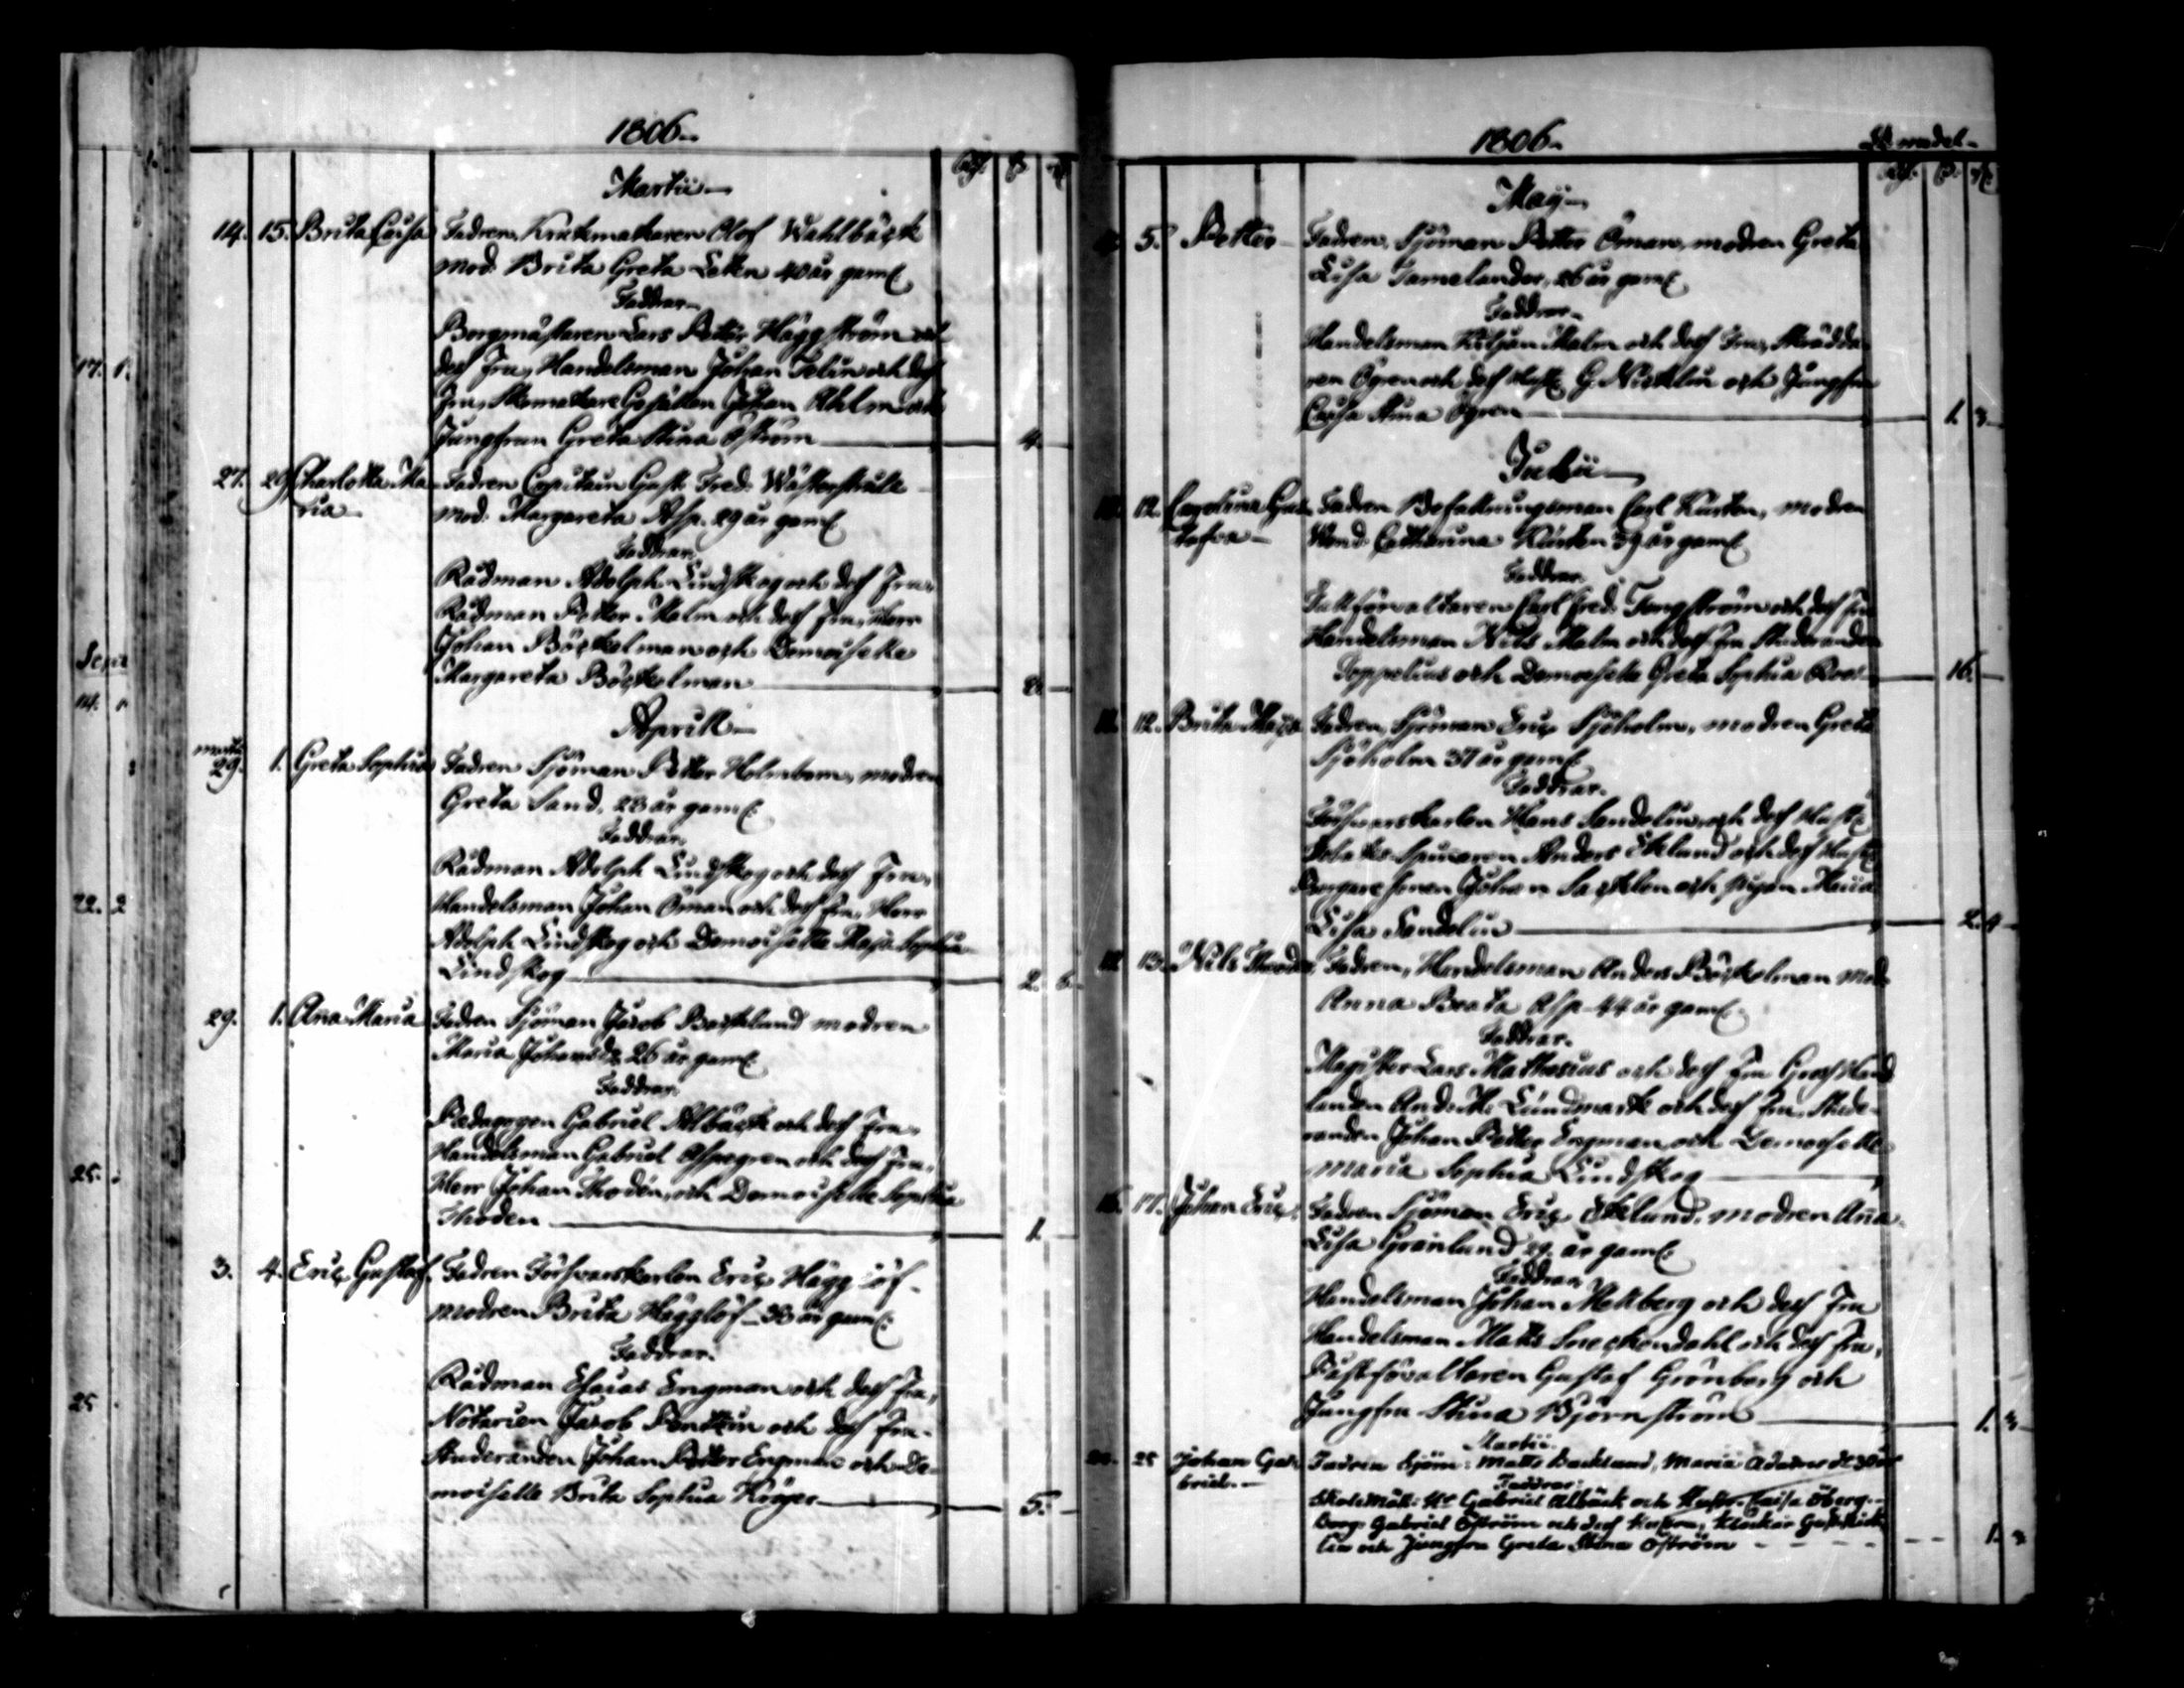 1806.
Martii
14. 15. Brita Caisa Fadren, Krukmakaren Olof Wahlbäck
mod. Brita Greta 40 år gam
Faddrar
Borgmästaren Lars Petter Häggström och
dess Fru, Handelsman Johan Telin och dess
Fru, Skomakare Gesällen Johan Ahlm och
Jungfrun Greta Stina Öström 4.
17.
27. 29. Charlotta Ma Fadren Capitain Gust. Fred. Wästerstråle
ria mod. Margareta Asp. 29 år gam
Faddrar
Rådman Adolph Lindskog och dess Fru,
Rådman Petter Malm och dess Fru, Herr
Johan Böckelman och Demoiselle
Margareta Böckelman 2.
14.
Aprill
Martii
29. 1. Greta Sophia Fadren Sjöman Petter Holmbom, modren
Greta Sand, 23 år gam
Faddrar
Rådman Adolph Lindskog och dess Fru,
Handelsman Johan Öman och dess Fru, Herr
Adolph Lindskog och Demoiselle Maja Sophia
Lindskog 2. 6.
22. 2
29. 1. Ana Maria Fadren Sjöman Jacob Backlund modren
Maria Johansdr 26 år gam
Faddrar
Pædagogen Gabriel Albäck och dess Fru,
Handelsman Gabriel Aspegren och dess Fru,
Herr Johan Thodén, och Demoiselle Sophia
Thoden 1.
25.
3. 4. Eric Gustaf Fadren Försvarskarlen Eric Hägglöf
modren Brita Hägglöf 33 år gam
Faddrar
Rådman Esaias Engman och dess Fru,
Notarien Jacob Pontin och dess Fru,
Studeranden Johan Petter Engman och De-
moiselle Brita Sophia Kröger 5.
25
1806.
May
5. Petter Fadren, Sjöman Petter Öman, modren Greta
Lisa Tamelander, 26 år gam
Faddrar
Handelsman Kiljan Malm och dess Fru, Skrädda-
ren Ögren och dess Hust. G. Nicklin och Jungfru
Caisa Stina Ögren 1. 3.
Julii
12. Carolina Gus Fadren Befallningsman Carl Kursten, modren
tafva Wend. Catharina Kursten 39 år gam
Faddrar
Tullförvaltaren Carl Fred. Tengström och dess Fru
Handelsman Nils Malm och dess Fru Studeranden
Toppelius och Demoiselle Greta Sophia Roos 16.
11. 12. Brita Maja Fadren, Sjöman Eric Sjöholm, modren Greta
Sjöholm 37 år gam
Faddrar
Försvarskarlen Hans Sandelin och dess Hust.
Tobaks Spinaren Anders Eklund och dess Hust.
Borgare sonen Johan Sacklen och pigan Maria
Lisa Sandelin 2. 4
12 13. Nils Theodor Fadren, Handelsman Anders Böckelman mod.
Anna Beata Asp 44 år gam
Faddrar
Magister Lars Mathesius och dess Fru Gross Hand
landen And. M. Lundmark och dess Fru, Stude-
randen Johan Petter Engman och Demoiselle
Maria Sophia Lindskog
16. 17. Johan Eric Fadren Sjöman Eric Eklund, modren Ana
Lisa Granlund 29 år gam
Faddrar
Handelsman Johan Mellberg och dess Fru
Handelsman Matts Sneckendahl och dess Fru,
Gustaf Grönberg och
Jungfru Stina Björnström 1. 3
Martii
25 Johan Ga- Fadren Sjöm: Matts Backlund, Maria 30 år
briel Faddrar
Skolmäst: Hr Gabriel Albäck och Hustr. Caisa Öberg
Borg: Gabriel Öström och dess Hustru, Klockar Gust Nick
lin och Jungfru Greta Stina Öström 1.